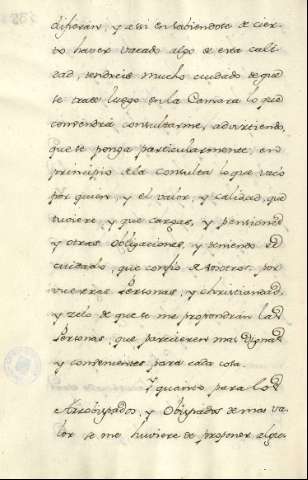 difieran, y assi en sabiendose de cier-
to haver vacado algo de esta cali-
dad, tendreis mucho cuidado de que
se trate luego en la Camara lo que
convendrá consultarme, advirtiendo,
que se ponga particularmente, en
principio de la Consulta lo que vacó
por quien, y el valor, y calidad, que
tuviere, y que cargas, y pensiones
y otras obligaciones, y teniendo el
cuidado, que confio de vosotros, por
vuestras Personas, y christiandad,
y zelo de que se me propondrán las
Personas, que parecieren mas dignas
y convenientes para cada cosa.
Y quando para los
Arzobispados, y Obispados de mas va-
lor se me huviere de proponer algu-